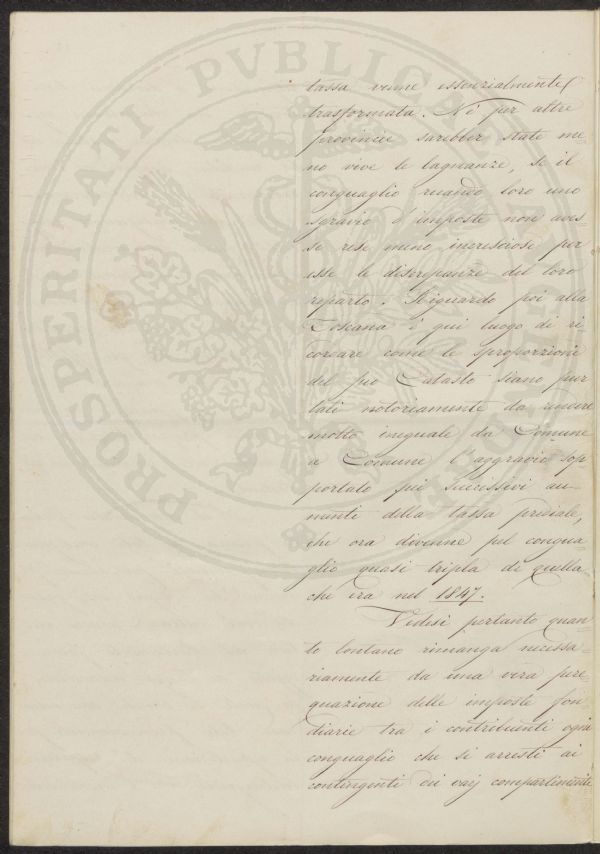 tassa venne essenzialmente
trasformata. Nè per altre
provincie sarebber state me=
no vive le lagnanze, se il
conguaglio recando loro uno
sgravio d'imposte non aves=
se rese meno incresciose per
esse le discrepanze del loro
reparto. Riguardo poi alla
Toscana è qui luogo di ri=
cordare come le sproporzioni
del suo Catasto siano pur
tali notoriamente da rendere
molto ineguale da Comune
a Comune l'aggravio sop=
portato pei successivi au=
menti della tassa prediale,
che ora divenne pel congua=
glio quasi tripla di quella
che era nel 1847.
Vedesi pertanto quan=
to lontano rimanga necessa=
riamente da una vera pere=
quazione delle imposte fon=
diarie tra i contribuenti ogni
conguaglio che si arresti ai
contingenti dei varj compartimenti
PROSPERITATI PVBLICAE AVGENDAE